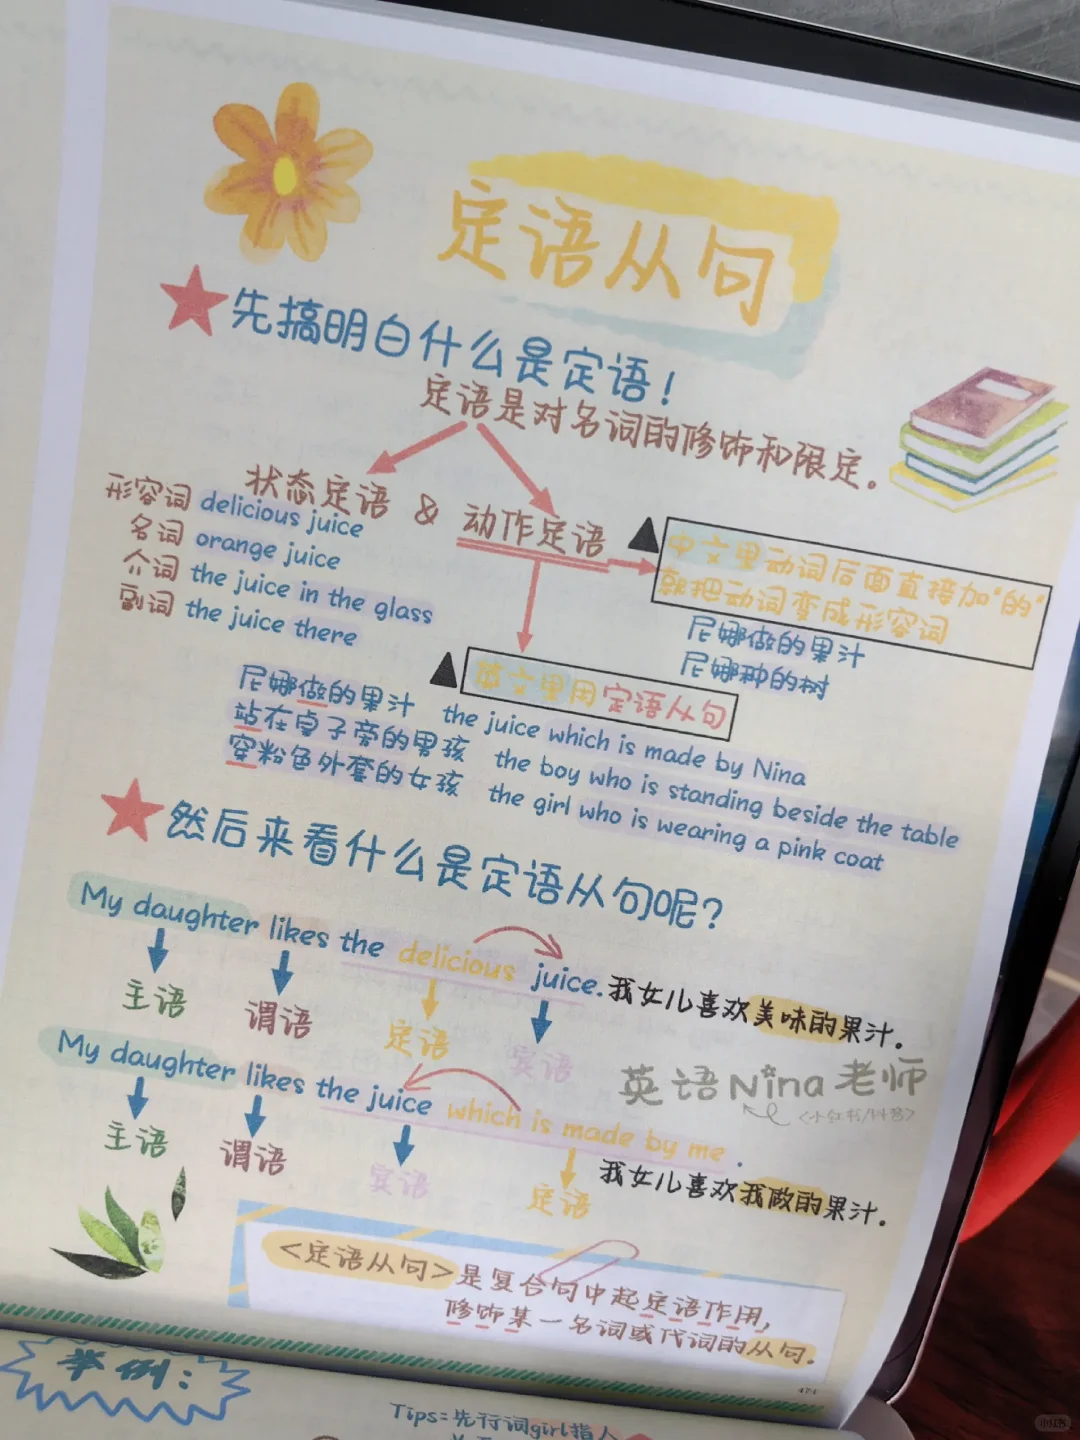 定语从句
先搞明白什么是定语!
定语是对名词的修饰和限定。
状态定语 & 动作定语
形容词 delicious juice
名词 orange juice
介词 the juice in the glass
副词 the juice there
中文里动词后面直接加"的"
就把动词变成形容词
尼娜做的果汁
尼娜种的树
英文里用定语从句
尼娜做的果汁 the juice which is made by Nina
站在桌子旁的男孩 the boy who is standing beside the table
穿粉色外套的女孩 the girl who is wearing a pink coat
然后来看什么是定语从句呢?
My daughter likes the delicious juice. 我女儿喜欢美味的果汁。
主语 谓语 定语 宾语
英语Nina老师
<小红书/抖音>
My daughter likes the juice which is made by me.
主语 谓语 宾语 定语
我女儿喜欢我做的果汁。
<定语从句>是复合句中起定语作用,
修饰某一名词或代词的从句。
举例:
Tips=先行词girl指人